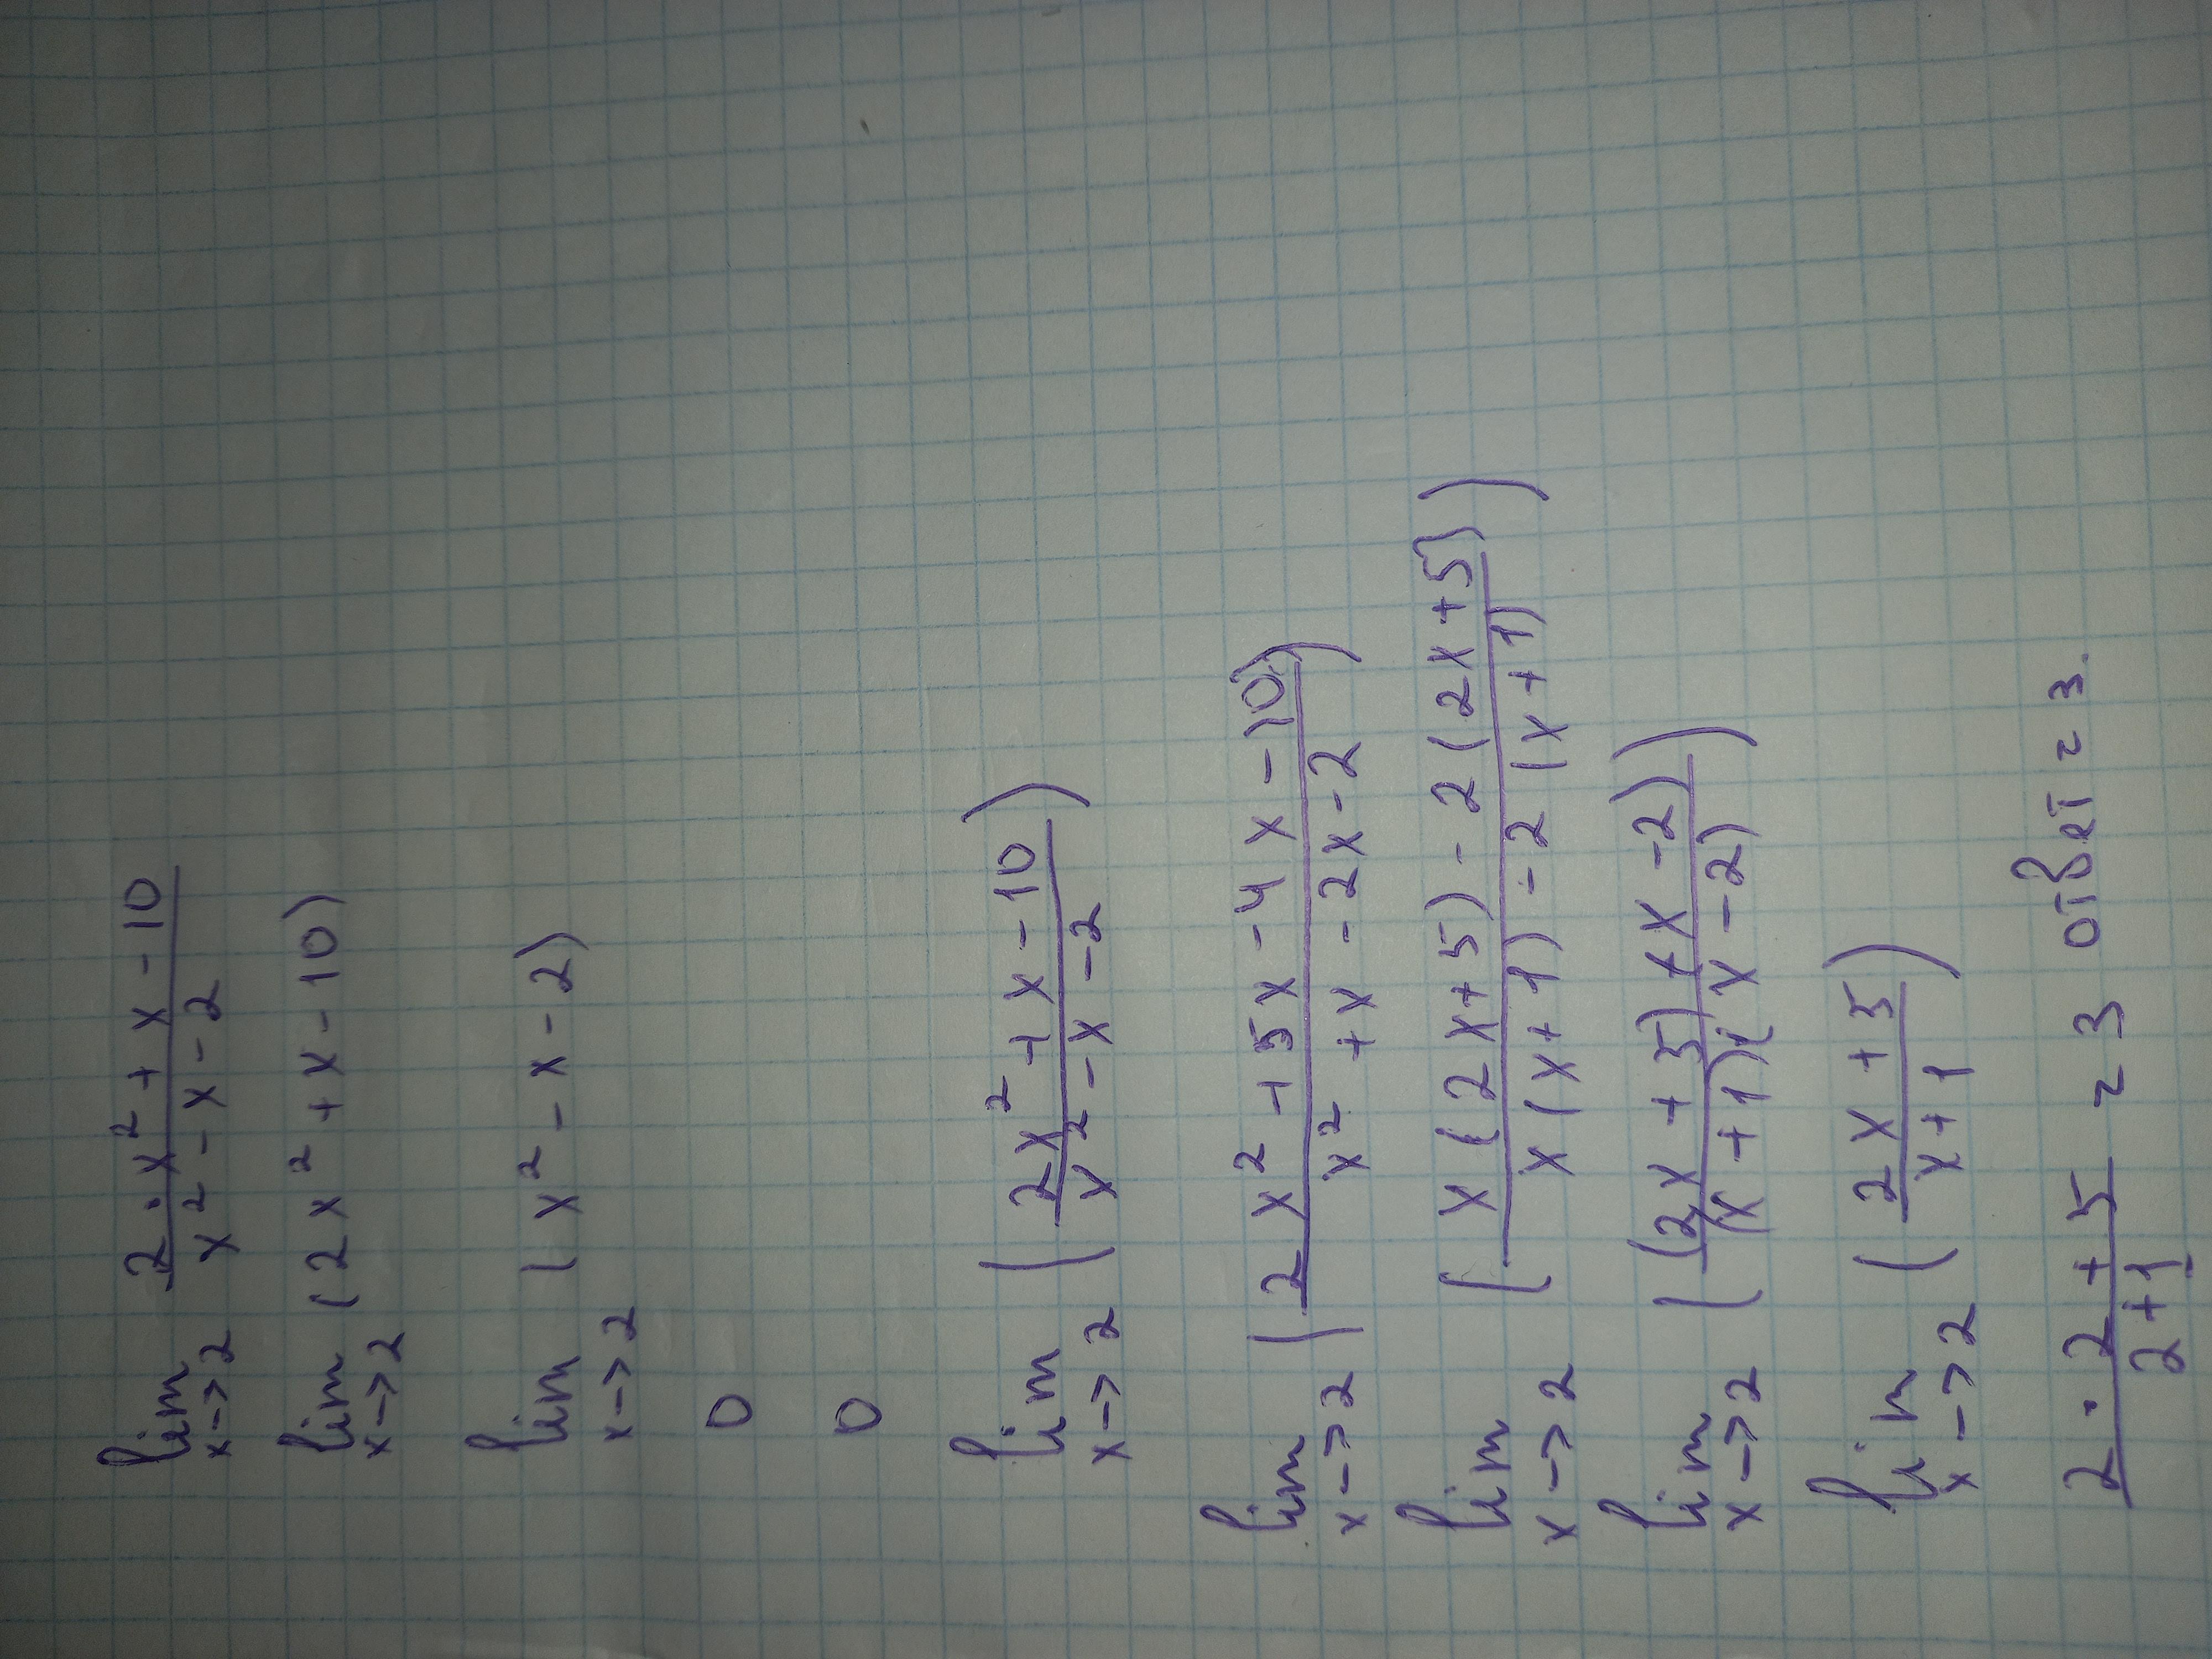 lim x->2 (2·x² + x - 10)/(x² - x - 2)
lim x->2 (2x² + x - 10)
lim x->2 (x² - x - 2)
0
0
lim x->2 ((2x² + x - 10)/(x² - x - 2))
lim x->2 ((2x² + 5x - 4x - 10)/(x² + x - 2x - 2))
lim x->2 ((x(2x+5) - 2(2x+5))/(x(x+1) - 2(x+1)))
lim x->2 (((2x+5)(x-2))/((x+1)(x-2)))
lim x->2 ((2x+5)/(x+1))
(2·2+5)/(2+1) = 3 ответ = 3.